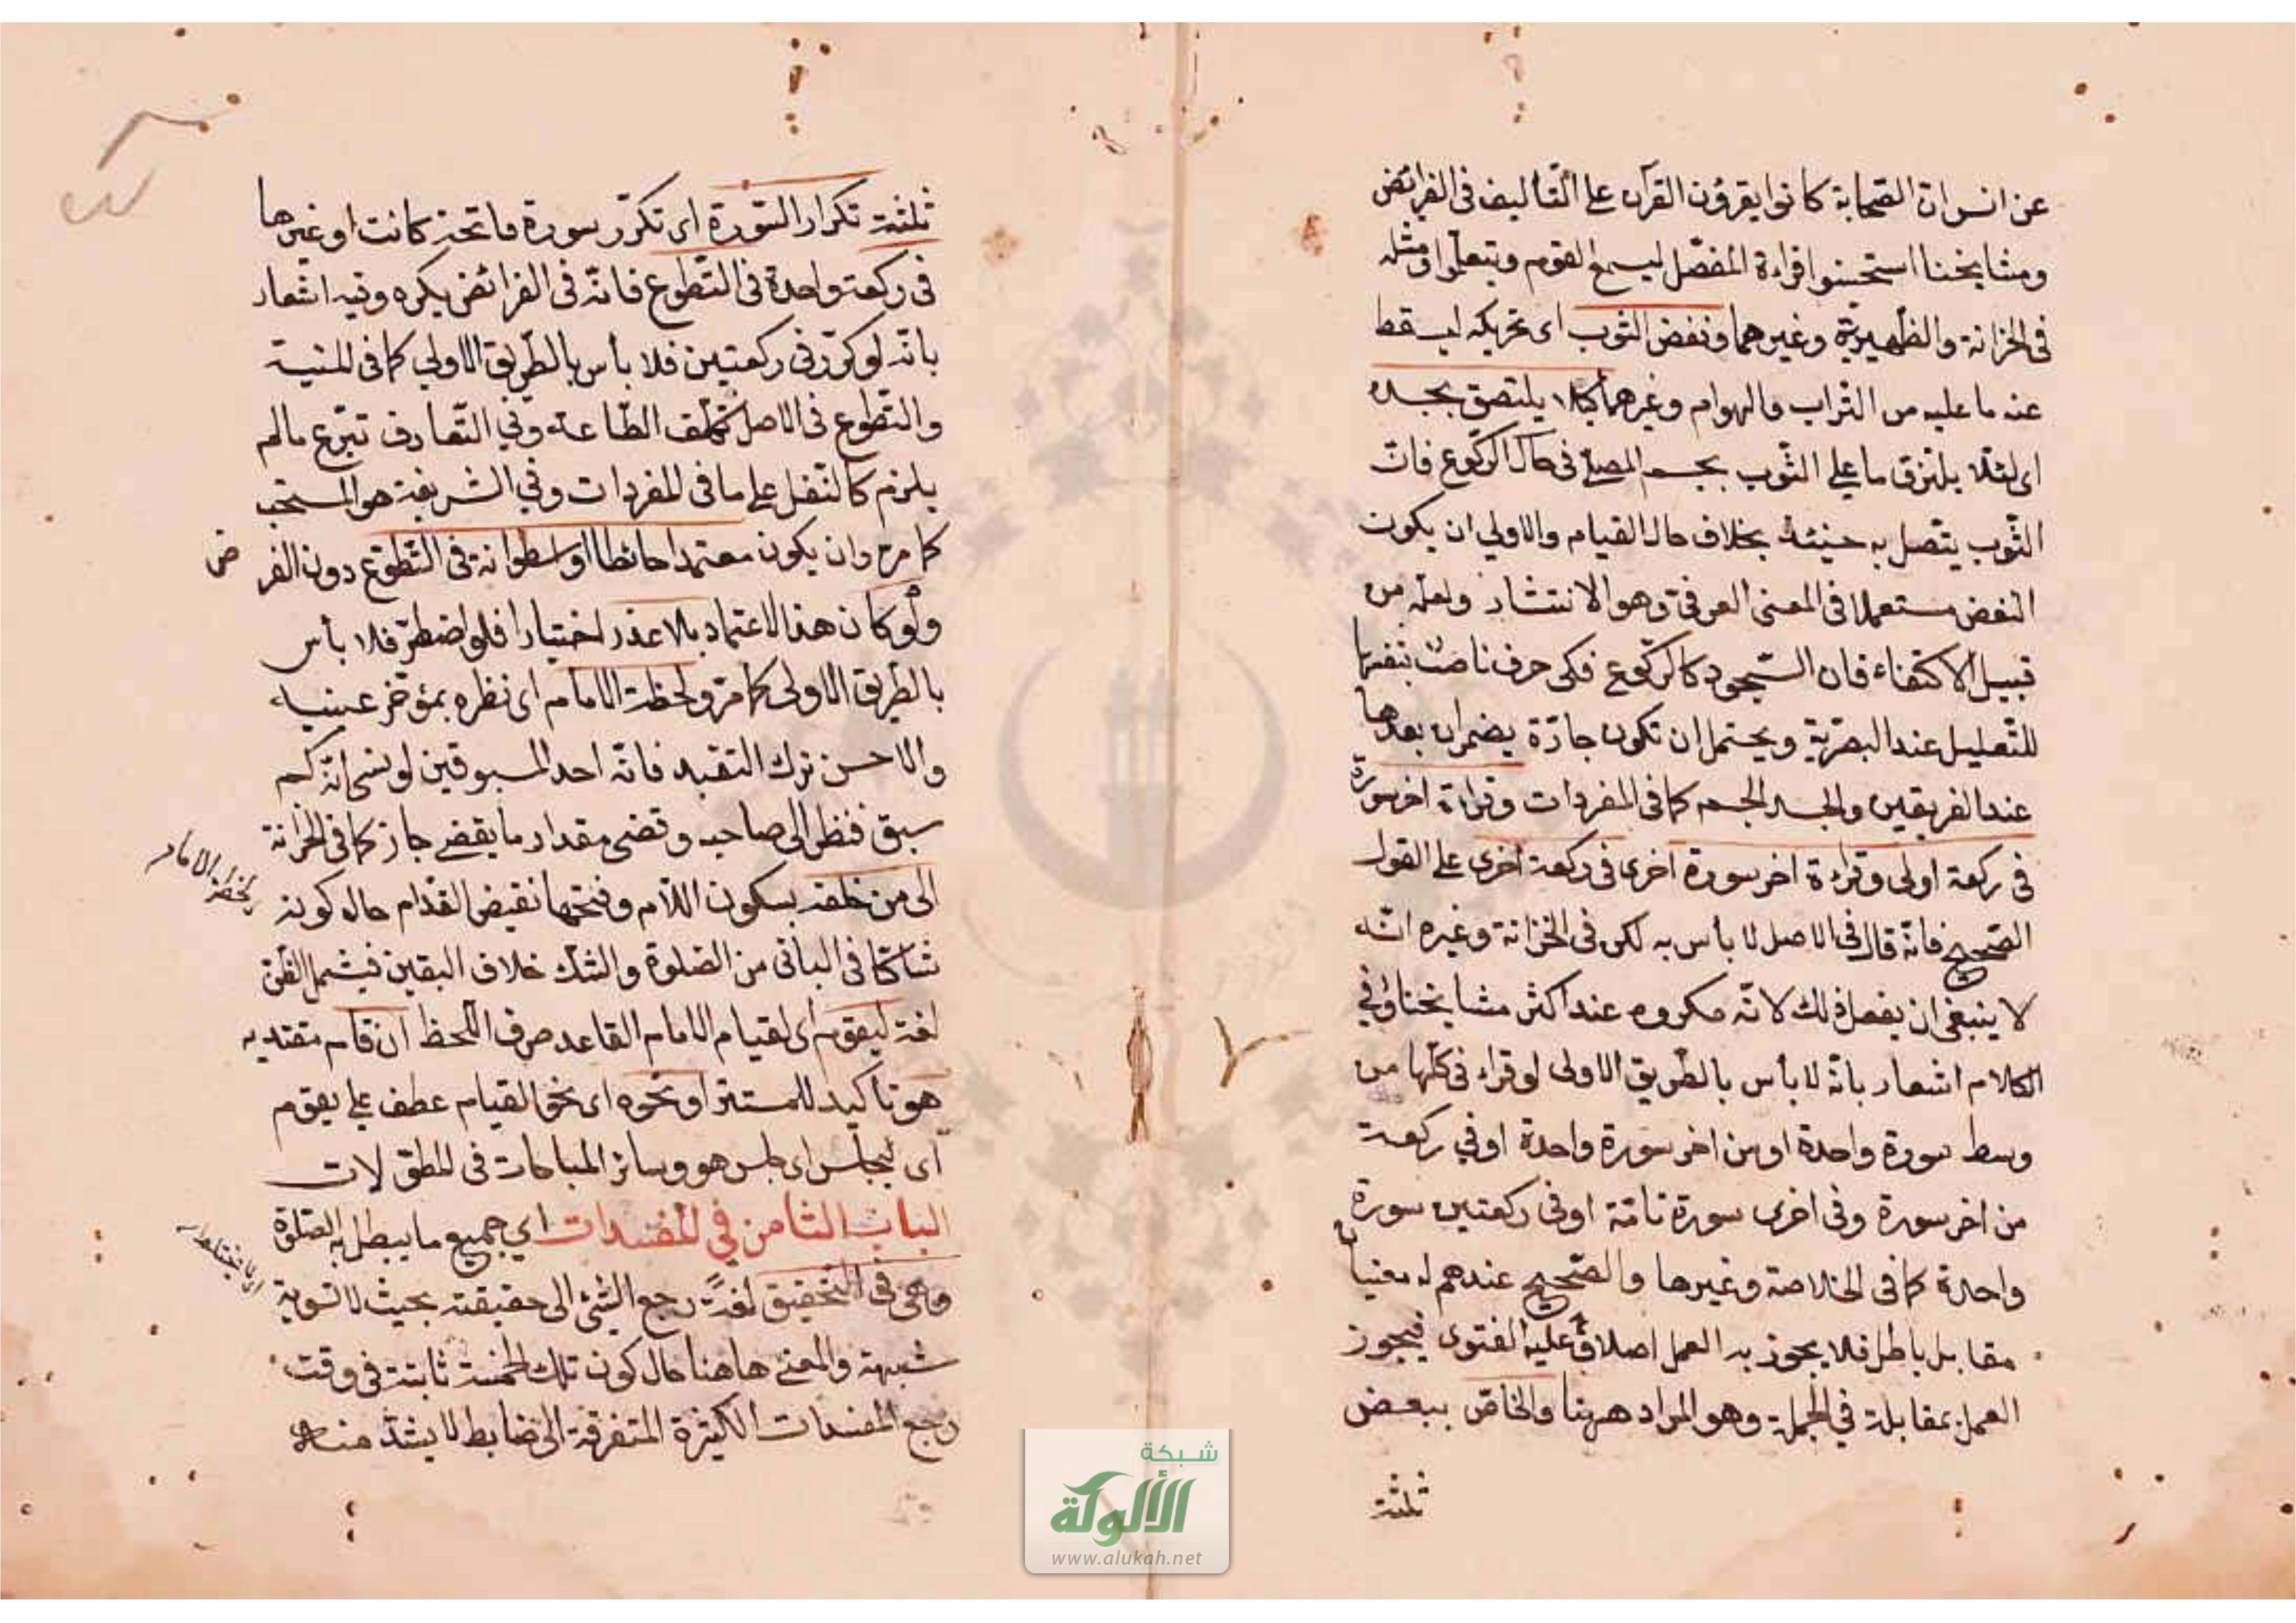 عن انس ان الصحابة كانوا يقرؤن القرآن على التأليف فى الفرائض
ومشايخنا استحسنوا قراءة المفصّل ليسمع القوم ويتعلموا ومثله
فى الخزانة والظهيرية وغيرهما ونفض الثوب اى تحريكه ليسقط
عنه ما عليه من التراب والهوام وغيرهما كيلا يلتصق بجسده
اى لئلا يلتزق ما على الثوب بجسم المصلى فى حال الركوع فانّ
الثوب يتصل به حينئذ بخلاف حال القيام والاولى ان يكون
النفض مستعملا فى المعنى العرفى وهو الانتشار ولعله من
قبيل الاكتفاء فان السّجود كالركوع فكى حرف ناصب بنفسها
للتعليل عند البصرية ويحتمل ان تكون جارّة بضمير ان بعدها
عند الفريقين والجسد الجسم كما فى المفردات وقراءة اخر سورة
فى ركعة اولى وقراءة اخر سورة اخرى فى ركعة اخرى على القول
الصحيح فانه قال فى الاصل لا بأس به لكن فى الخزانة وغيره انّه
لا ينبغى ان يفعل ذلك لانّه مكروه عند اكثر مشايخنا وفى
الكلام اشعار بانه لا بأس بالطريق الاولى لو قراء فى كلها من
وسط سورة واحدة او من اخر سورة واحدة او فى ركعة
من اخر سورة وفى اخرى سورة تامّة او فى ركعتين سورة
واحدة كما فى الخلاصة وغيرها والصّحيح عندهم له معنيان
مقابل باطل فلا يجوز به العمل اصلا وعليه الفتوى فيجوز
العمل بمقابلة فى الجملة وهو المراد ههنا والخاصّ ببعض
ثلثة
ثلثة تكرار السّورة اى تكرّر سورة فاتحة كانت او غيرها
فى ركعة واحدة فى التطوع فانّه فى الفرائض يكره وفيه اشعار
بانّه لو كرّر فى ركعتين فلا بأس بالطّريق الاولى كما فى المنية
والتطوع فى الاصل تكلّف الطّاعة وفى التّعارف تبرّع مالم
يلزم كالنفل على ما فى المفردات وفى الشريعة هو المستحب
كما مرّ وان يكون معتمدا حائطا او اسطوانة فى التطوّع دون الفر
ض
ولو كان هذا الاعتماد بلا عذر اختيارا فلو اضطرّ فلا بأس
بالطّريق الاولى كما مرّ ولحظة الامام اى نظره بمؤخر عينيه
والاحسن ترك التقييد فانّه احد المسبوقين لو نسى انّه كم
سبق فنظر الى صاحبه وقضى مقدار ما يقضى جاز كما فى الخزانة
لحظة الامام
الى من خلفه بسكون اللّام وفتحها نقيض القدّام حال كونه
شاكّا فى الباقى من الصّلوة والشك خلاف اليقين فيشمل الظن
لغة ليقوم اى لقيام الامام القاعد صرف اللحظ ان قام مقتديه
هو تأكيد للمستتر او نحوه اى نحو القيام عطف على يقوم
اى ليجلس اى جلس هو وسائر المباحات فى المطولات
الباب الثامن فى المفسدات اى جميع ما يبطل به الصّلوة
وهى فى التحقيق لغةً رجع الشئ الى حقيقته بحيث لا تشوبه
شبهة والمعنى هاهنا حال كون تلك الخمسة ثابتة فى وقت
رجع المفسدات الكثيرة المتفرقة الى ضابط لا يشذ منه
شبكة
الألوكة
www.alukah.net